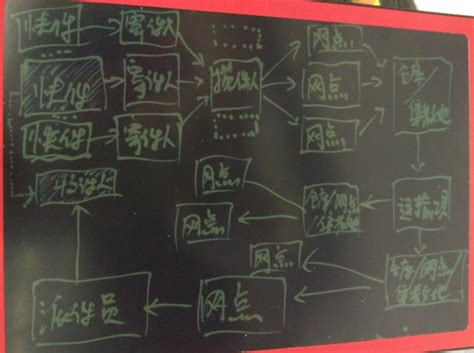 快件
寄件人
网点
快件
寄件人
揽件人
网点
仓库/
集散地
快件
寄件人
网点
收件人
网点
网点
仓库/网点
/集散地
网点
仓库/网点/
集散地
派件员
网点